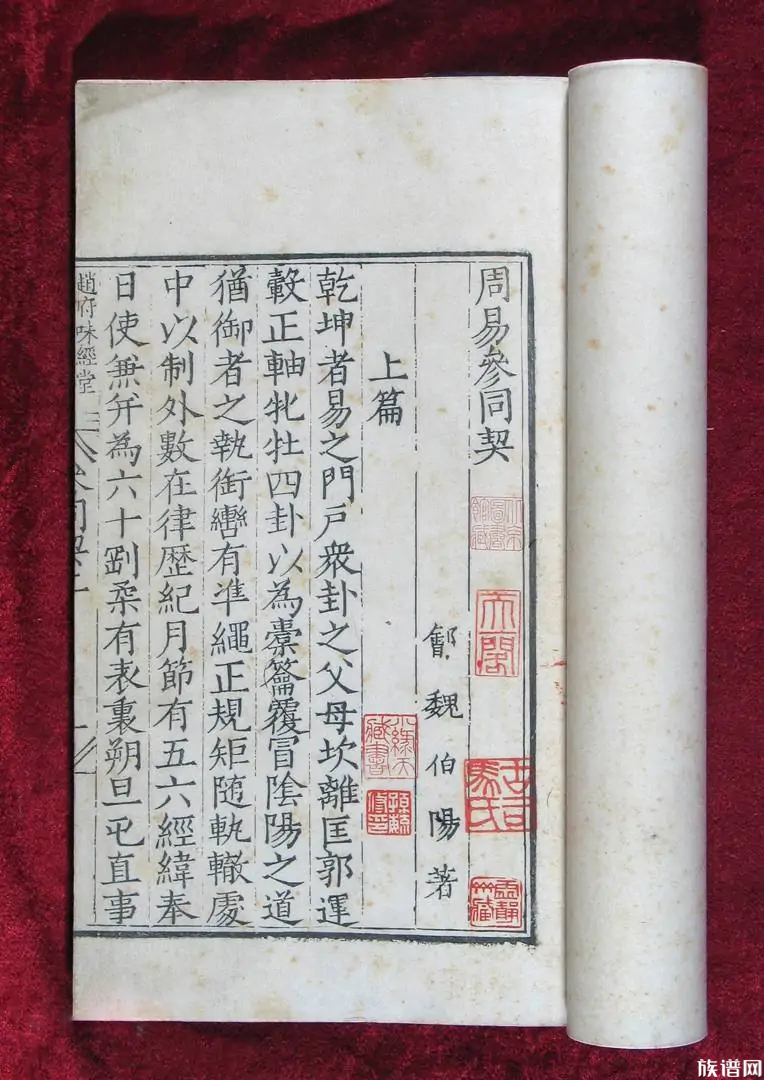 周易參同契
鄶魏伯陽著
上篇
乾坤者易之門戶衆卦之父母坎離匡郭運
轂正軸牝牡四卦以為橐籥覆冒陰陽之道
猶御者之執銜轡有準繩正規矩隨軌轍處
中以制外數在律歷紀月節有五六經緯奉
日使兼并為六十剛柔有表裏朔旦屯直事
趙府味經堂
族谱网